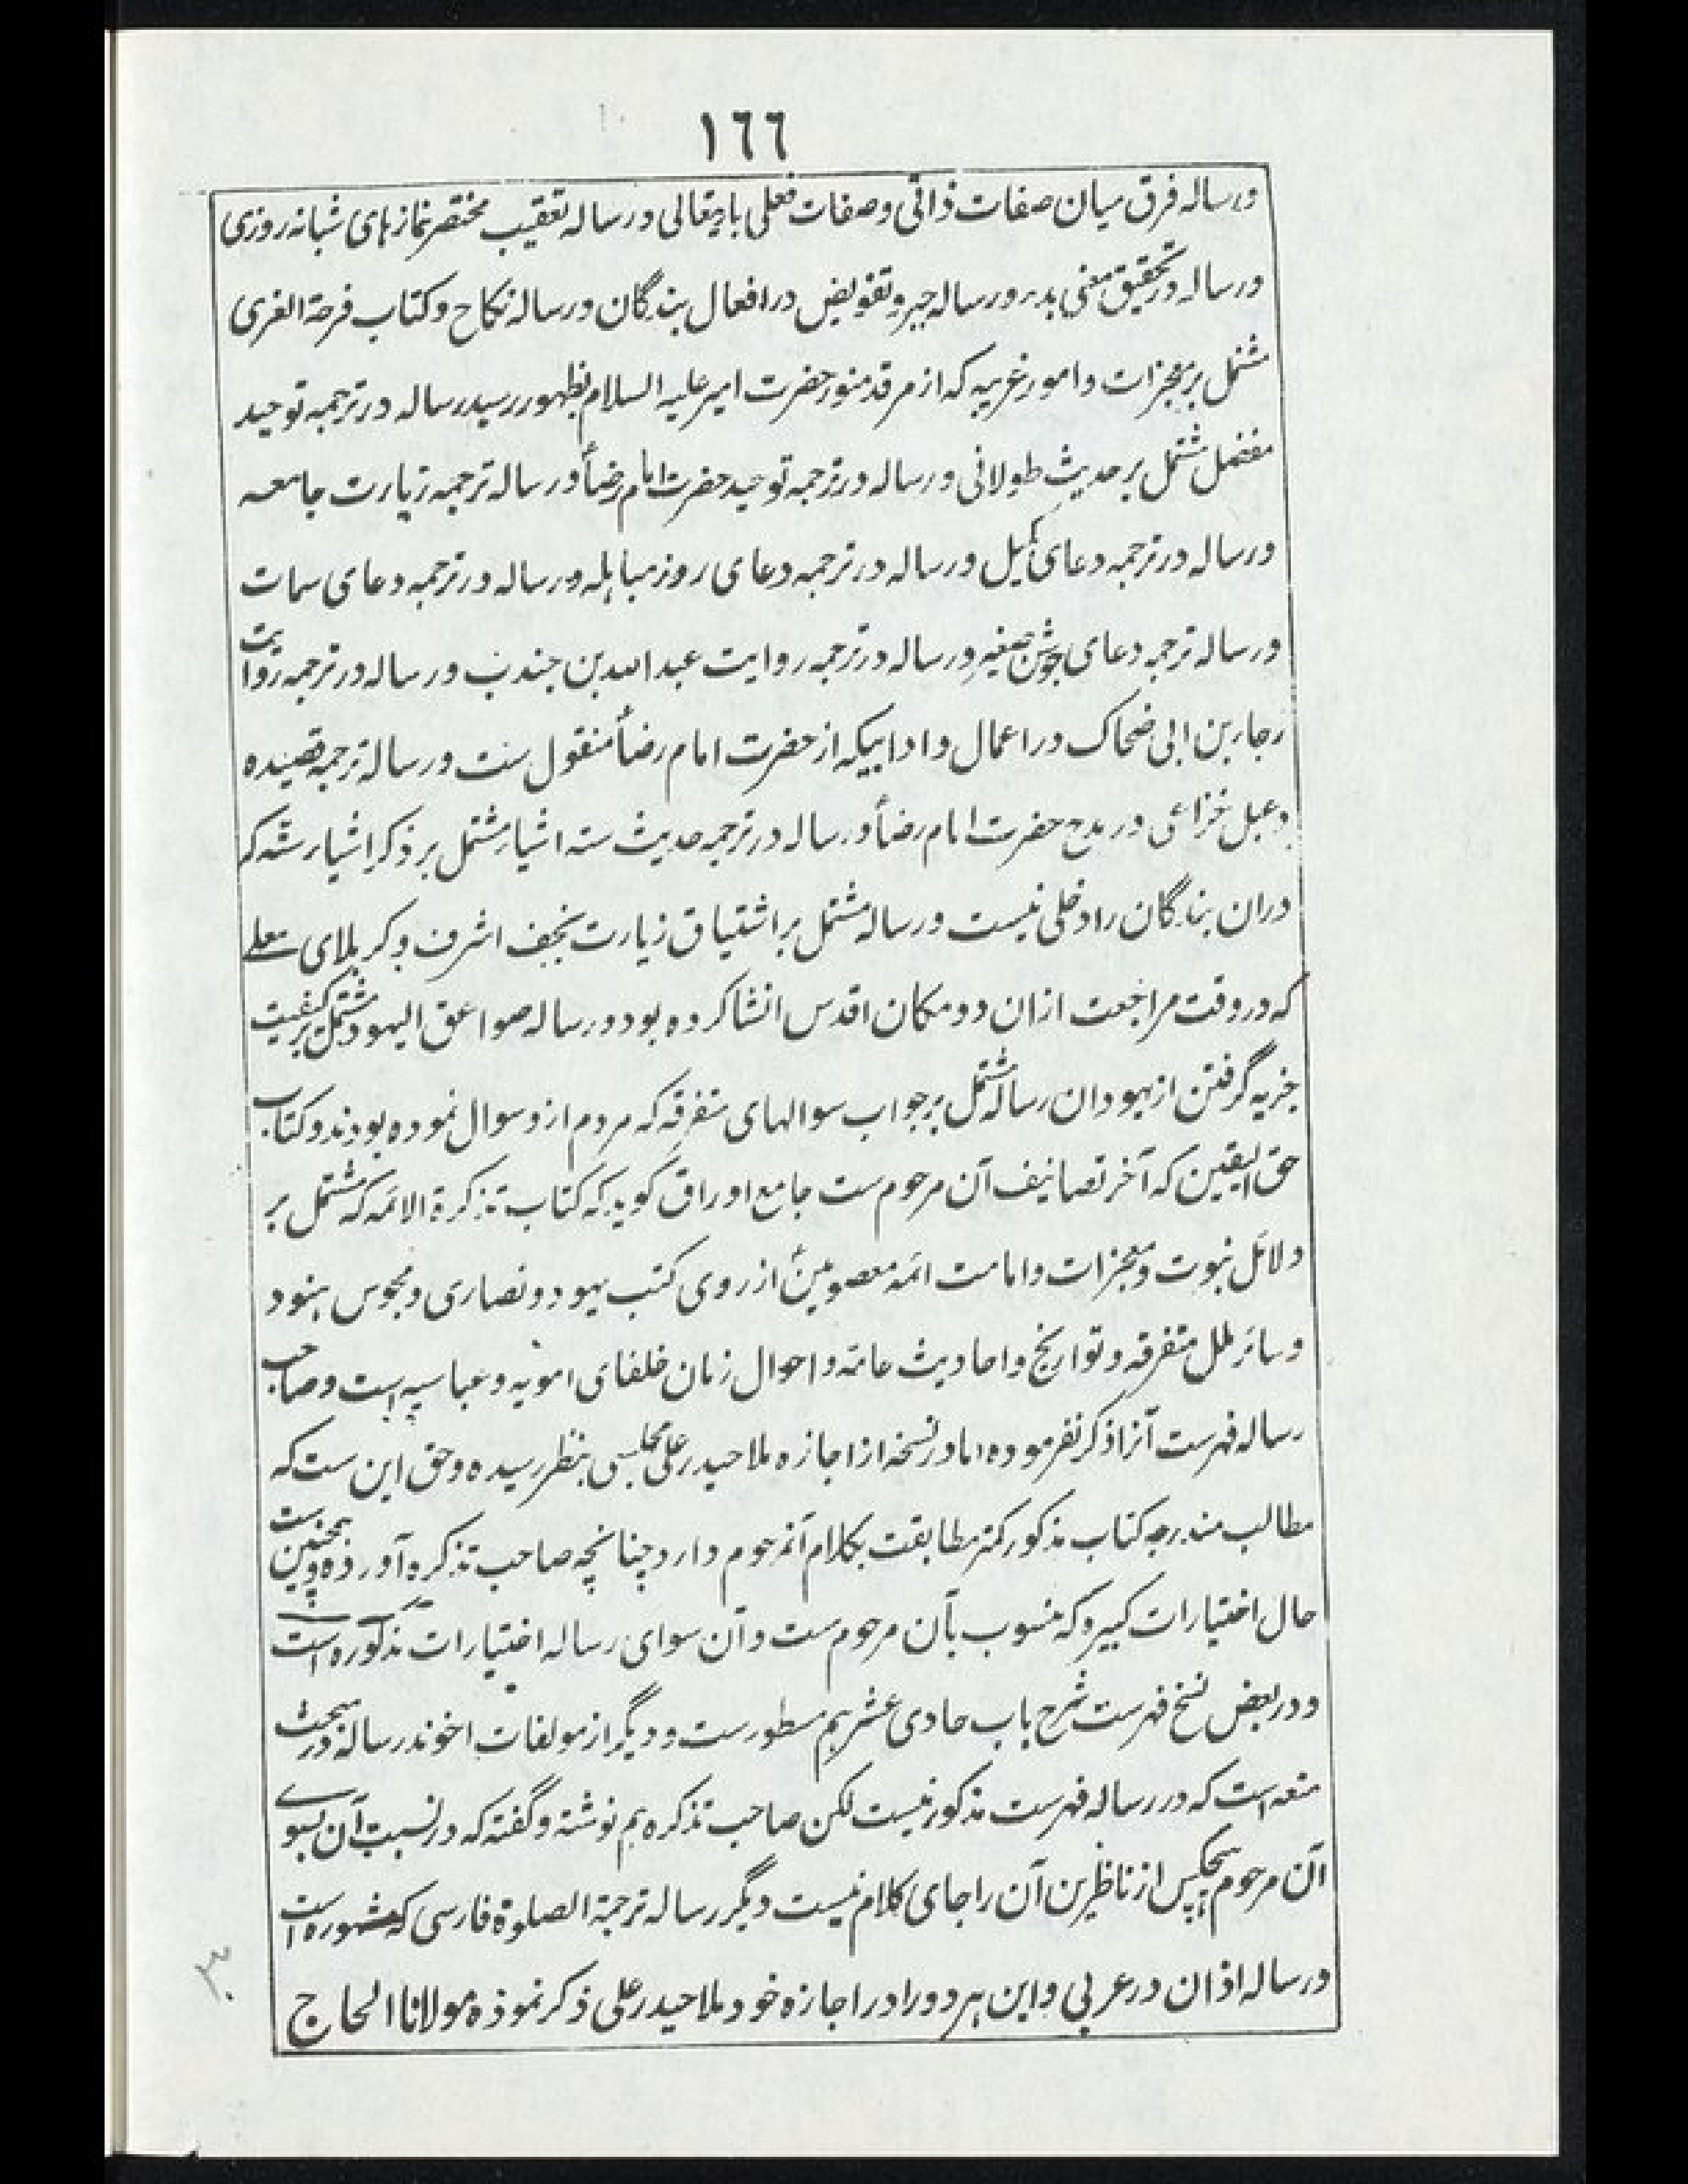 ١٦٦
ورساله فرق میان صفات ذاتی وصفات فعلی باریتعالی ورساله تعقیب مختصر نمازهای شبانه روزی
ورساله در تحقیق معنی بدء ورساله جبر وتفویض در افعال بندگان ورساله نکاح وکتاب فرحة الغری
مشتمل بر معجزات وامور غریبه که از مرقد منور حضرت امیر علیه السلام بظهور رسید رساله در ترجمه توحید
مفضل مشتمل بر حدیث طولانی ورساله در ترجمه توحید حضرت امام رضاؑ ورساله ترجمه زیارت جامعه
ورساله در ترجمه دعای کمیل ورساله در ترجمه دعای روز مباهله ورساله در ترجمه دعای سمات
ورساله ترجمه دعای جوشن صغیر ورساله در ترجمه روایت عبد الله بن جندب ورساله در ترجمه روایت
رجاء بن ابی ضحاک در اعمال وادابیکه از حضرت امام رضاؑ منقول ست ورساله ترجمه قصیده
دعبل خزاعی در مدح حضرت امام رضاؑ ورساله در ترجمه حدیث سته اشیاء مشتمل بر ذکر اشیاء سته که
دران بندگان را دخلی نیست ورساله مشتمل بر اشتیاق زیارت نجف اشرف وکربلای معلے
که در وقت مراجعت ازان دو مکان اقدس انشا کرده بود ورساله صواعق الیهود مشتمل بر کیفیت
جزیه گرفتن از یهودان رساله مشتمل بر جواب سوالهای متفرقه که مردم ازو سوال نموده بودند وکتاب
حق الیقین که آخر تصانیف آن مرحوم ست جامع اوراق گوید که کتاب تذکرة الائمه که مشتمل بر
دلائل نبوت ومعجزات وامامت ائمه معصومینؑ از روی کتب یهود ونصاری ومجوس هنود
وسائر ملل متفرقه وتواریخ واحادیث عامه واحوال زمان خلفای امویه وعباسیه است وصاحب
رساله فهرست آنرا ذکر نفرموده اما در نسخه از اجازه ملا حیدر علی مجلسی بنظر رسیده وحق این ست که
مطالب مندرجه کتاب مذکور کمتر مطابقت بکلام آنمرحوم دارد چنانچه صاحب تذکره آورده وهمچنین ست
حال اختیارات کبیره که منسوب بآن مرحوم ست وآن سوای رساله اختیارات مذکوره است
ودر بعض نسخ فهرست شرح باب حادی عشر هم مسطورست ودیگر از مولفات اخوند رساله در مبحث
متعه است که در رساله فهرست مذکور نیست لکن صاحب تذکره هم نوشته وگفته که در نسبت آن بسوے
آن مرحوم هیچکس از ناظرین آن را جای کلام نیست دیگر رساله ترجمة الصلوة فارسی که مشهوره است
ورساله اذان در عربی واین هر دو را در اجازه خود ملا حیدر علی ذکر نموده مولانا الحاج